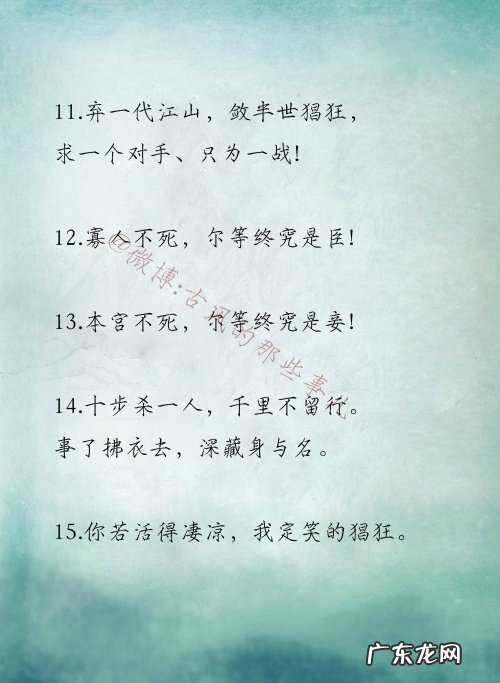 11.弃一代江山，敛半世猖狂，
求一个对手、只为一战!
12.寡人不死，尔等终究是臣!
13.本宫不死，尔等终究是妾!
14.十步杀一人，千里不留行。
事了拂衣去，深藏身与名。
15.你若活得凄凉，我定笑的猖狂。
@微博:古风的那些事儿
广东龙网